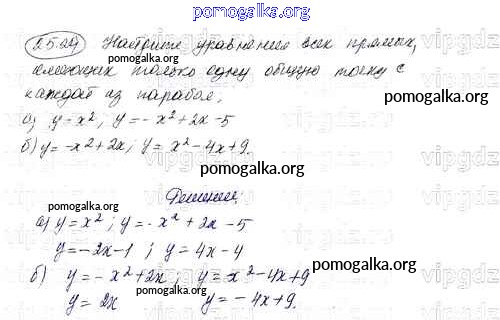 pomogalka.org
25.24 Найдите уравнения всех прямых,
имеющих только одну общую точку с
каждой из парабол,
pomogalka.org
а) y=x², y=-x²+2x-5
б) y=-x²+2x; y=x²-4x+9.
pomogalka.org
Решение:
pomogalka.org
а) y=x²; y=-x²+2x-5
y=-2x-1; y=4x-4
pomogalka.org
б) y=-x²+2x; y=x²-4x+9
pomogalka.org
y=2x y=-4x+9.
pomogalka.org